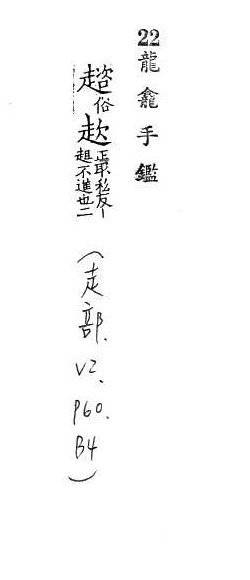 22龍龕手鑑
趦俗
趑正取私反丨
趄不進也二
(走部.
V2、
P60.
B4)